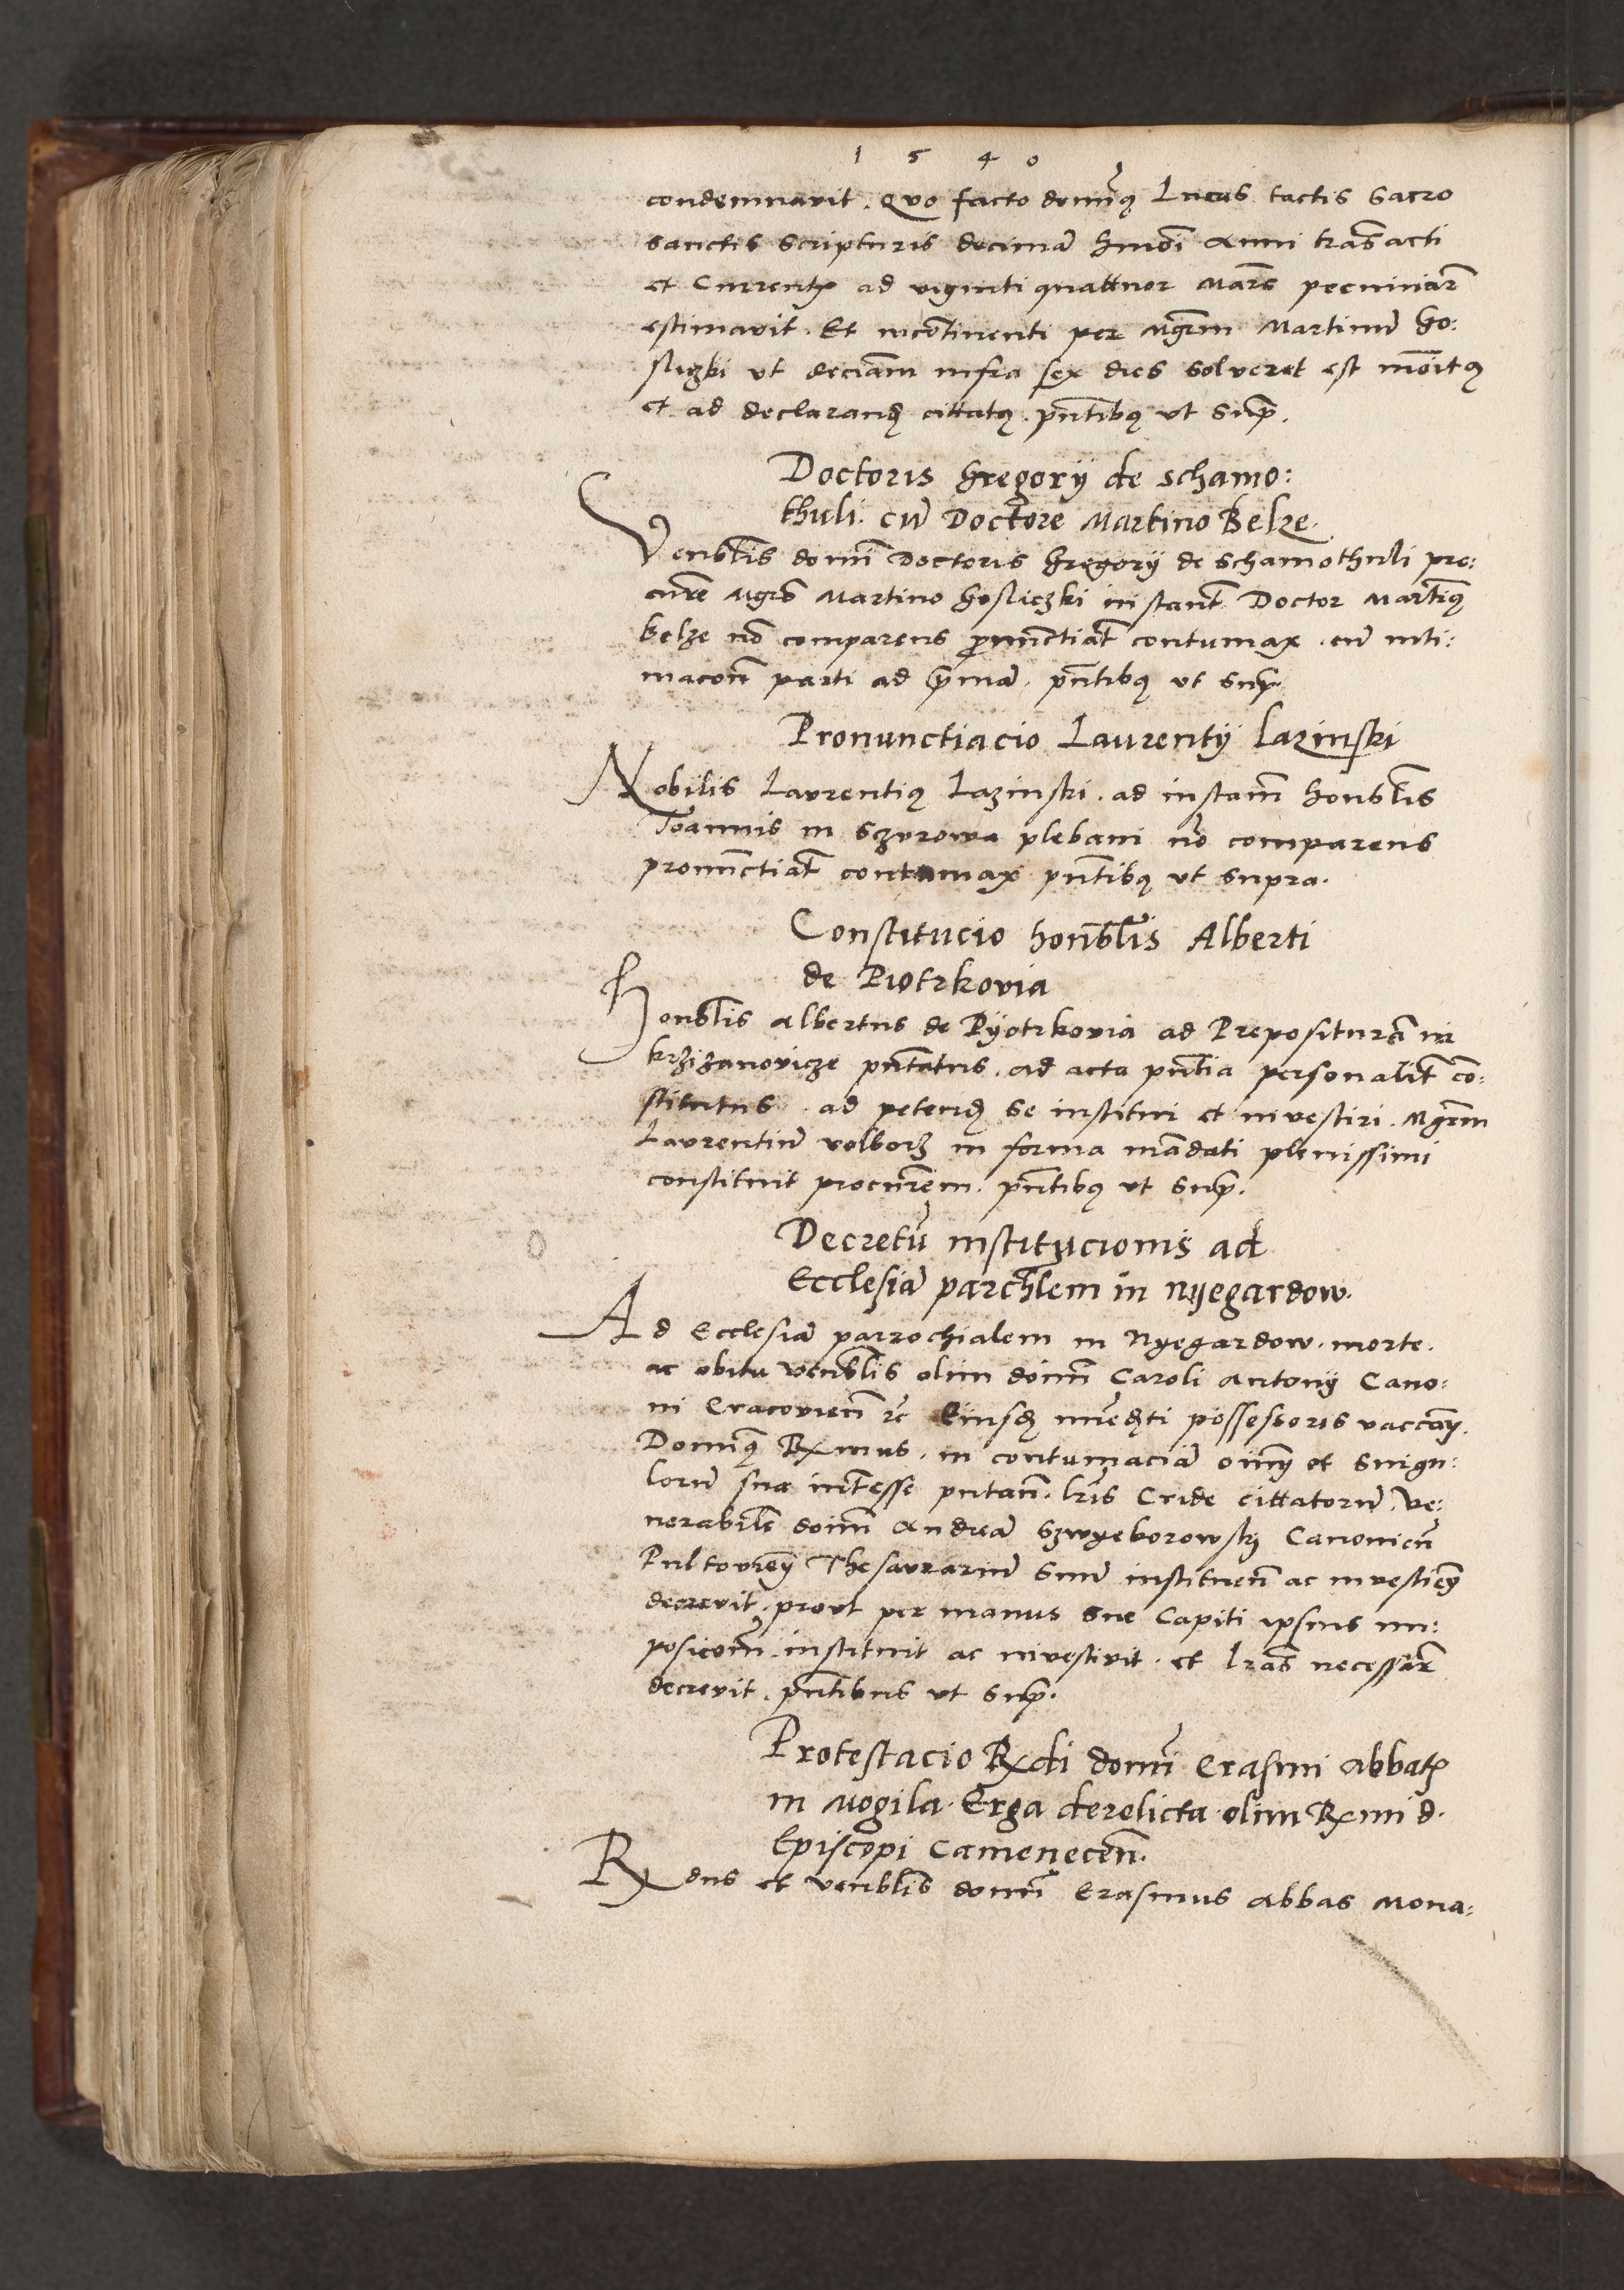 1540
condemnavit. Quo facto domīq Lucas tactis sacro
sanctis scripturis decimā hmōi anni trāsacti
et Currentꝭ ad viginti quattuor Marc pecuniar̄
estimavit. Et incōtinenti per Mgrm Martinū Go:
sliczki ut deciām infra sex dies solveret est mōitꝯ
et ad declarandꝫ cittatꝯ. pn̄tibꝯ ut sup̄.
Doctoris Gregorÿ de Schamo:
thuli. cū Doctore Martino Belze.
Venblis domī Doctoris Gregorÿ de Schamothuli pro:
cur̄e Mgrō Martino Gosliczki instan̄t Doctor Martīꝯ
belze nō comparens pronūctiat̄ contumax. cū inti:
macōn̄ parti ad p̄mā. pn̄tibꝯ ut sup̄.
Pronunctiacio Laurentÿ Lazinski
Nobilis Laurentiꝯ Lazinski. ad instan̄ honblis
Joannis in Sczurowa plebani nō comparens
pronūctiat̄ contumax pn̄tibꝯ ut supra.
Constitucio honblis Alberti
de Piotrkovia
Honblis Albertus de Pÿotrkovia ad Prepositurā in
krzizanovicze pn̄tatus. ad acta pn̄tia personalit̄ co:
stitutus. ad petendꝫ se institui et investiri. Mgrm
Laurentiū volborz in forma mādati plenissimi
constituit procur̄em. pn̄tibꝯ ut sup̄.
Decretū institucionis ad
Ecclesiā parchlem in Nyegardow.
Ad Ecclesiā parrochialem in Nyegardow. morte.
ac obitu venblis olim domī Caroli Antonÿ Cano:
ni Cracovien̄ ꝛc Eiusdꝫ possessoris vacan̄.
Dominꝯ Rx̄mus. in contumaciā om̄ et singu:
lorū sua int̄esse putan̄. Lr̄is Cride cittatorū. Ve:
nerabilē domī Andreā Szwyeborowskꝫ Canonicū
Pultovien̄ Thesaurariū Suū instituen̄ ac investien̄
decrevit. prout per manus sue Capiti ipsius im:
posicōm̄. instituit ac investivit. et Lr̄as necessar̄
decrevit. pn̄tibus ut sup̄.
Protestacio Rx̄di domī Erasmi Abbatꝭ
in Mogila. Erga derelicta olim Rx̄mi d.
Episcopi Camenecen̄.
Rx̄dus et venblis domī Erasmus Abbas Mona: